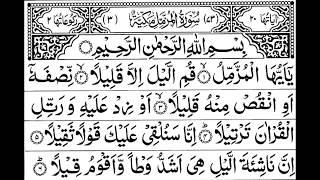 اٰيَاتُهَا ٢٠ (٧٣) سُوْرَةُ الْمُزَّمِّلِ مَكِّيَّةٌ (٣) رُكُوْعَاتُهَا ٢
بِسْمِ اللّٰهِ الرَّحْمٰنِ الرَّحِيْمِ
يٰۤاَيُّهَا الْمُزَّمِّلُ ۙ۱ قُمِ الَّيْلَ اِلَّا قَلِيْلًا ۙ۲ نِّصْفَهٗۤ
اَوِ انْقُصْ مِنْهُ قَلِيْلًا ۙ۳ اَوْ زِدْ عَلَيْهِ وَ رَتِّلِ
الْقُرْاٰنَ تَرْتِيْلًا ؕ۴ اِنَّا سَنُلْقِيْ عَلَيْكَ قَوْلًا ثَقِيْلًا ۵
اِنَّ نَاشِئَةَ الَّيْلِ هِيَ اَشَدُّ وَطْاً وَّ اَقْوَمُ قِيْلًا ؕ۶